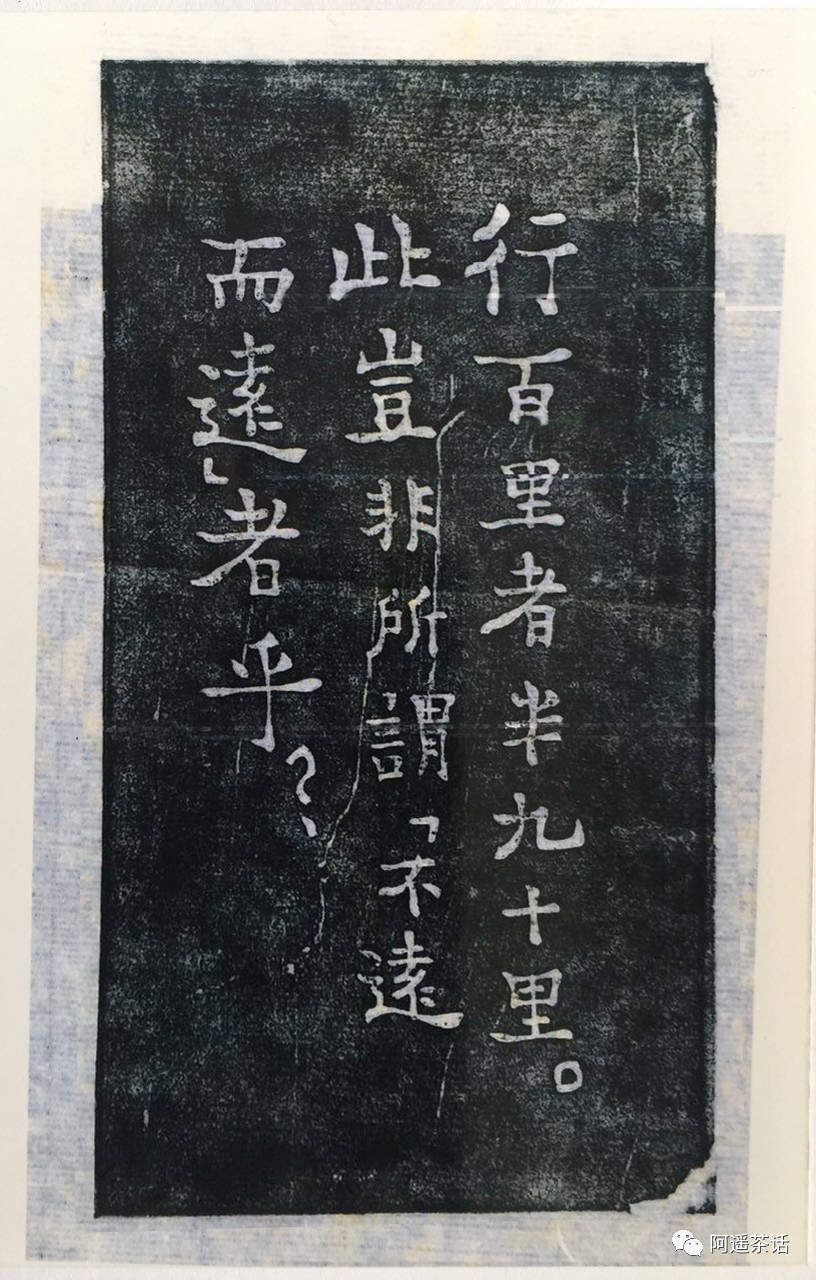 行百里者半九十里。
此豈非所謂「不遠
而遠」者乎？
阿遥茶话